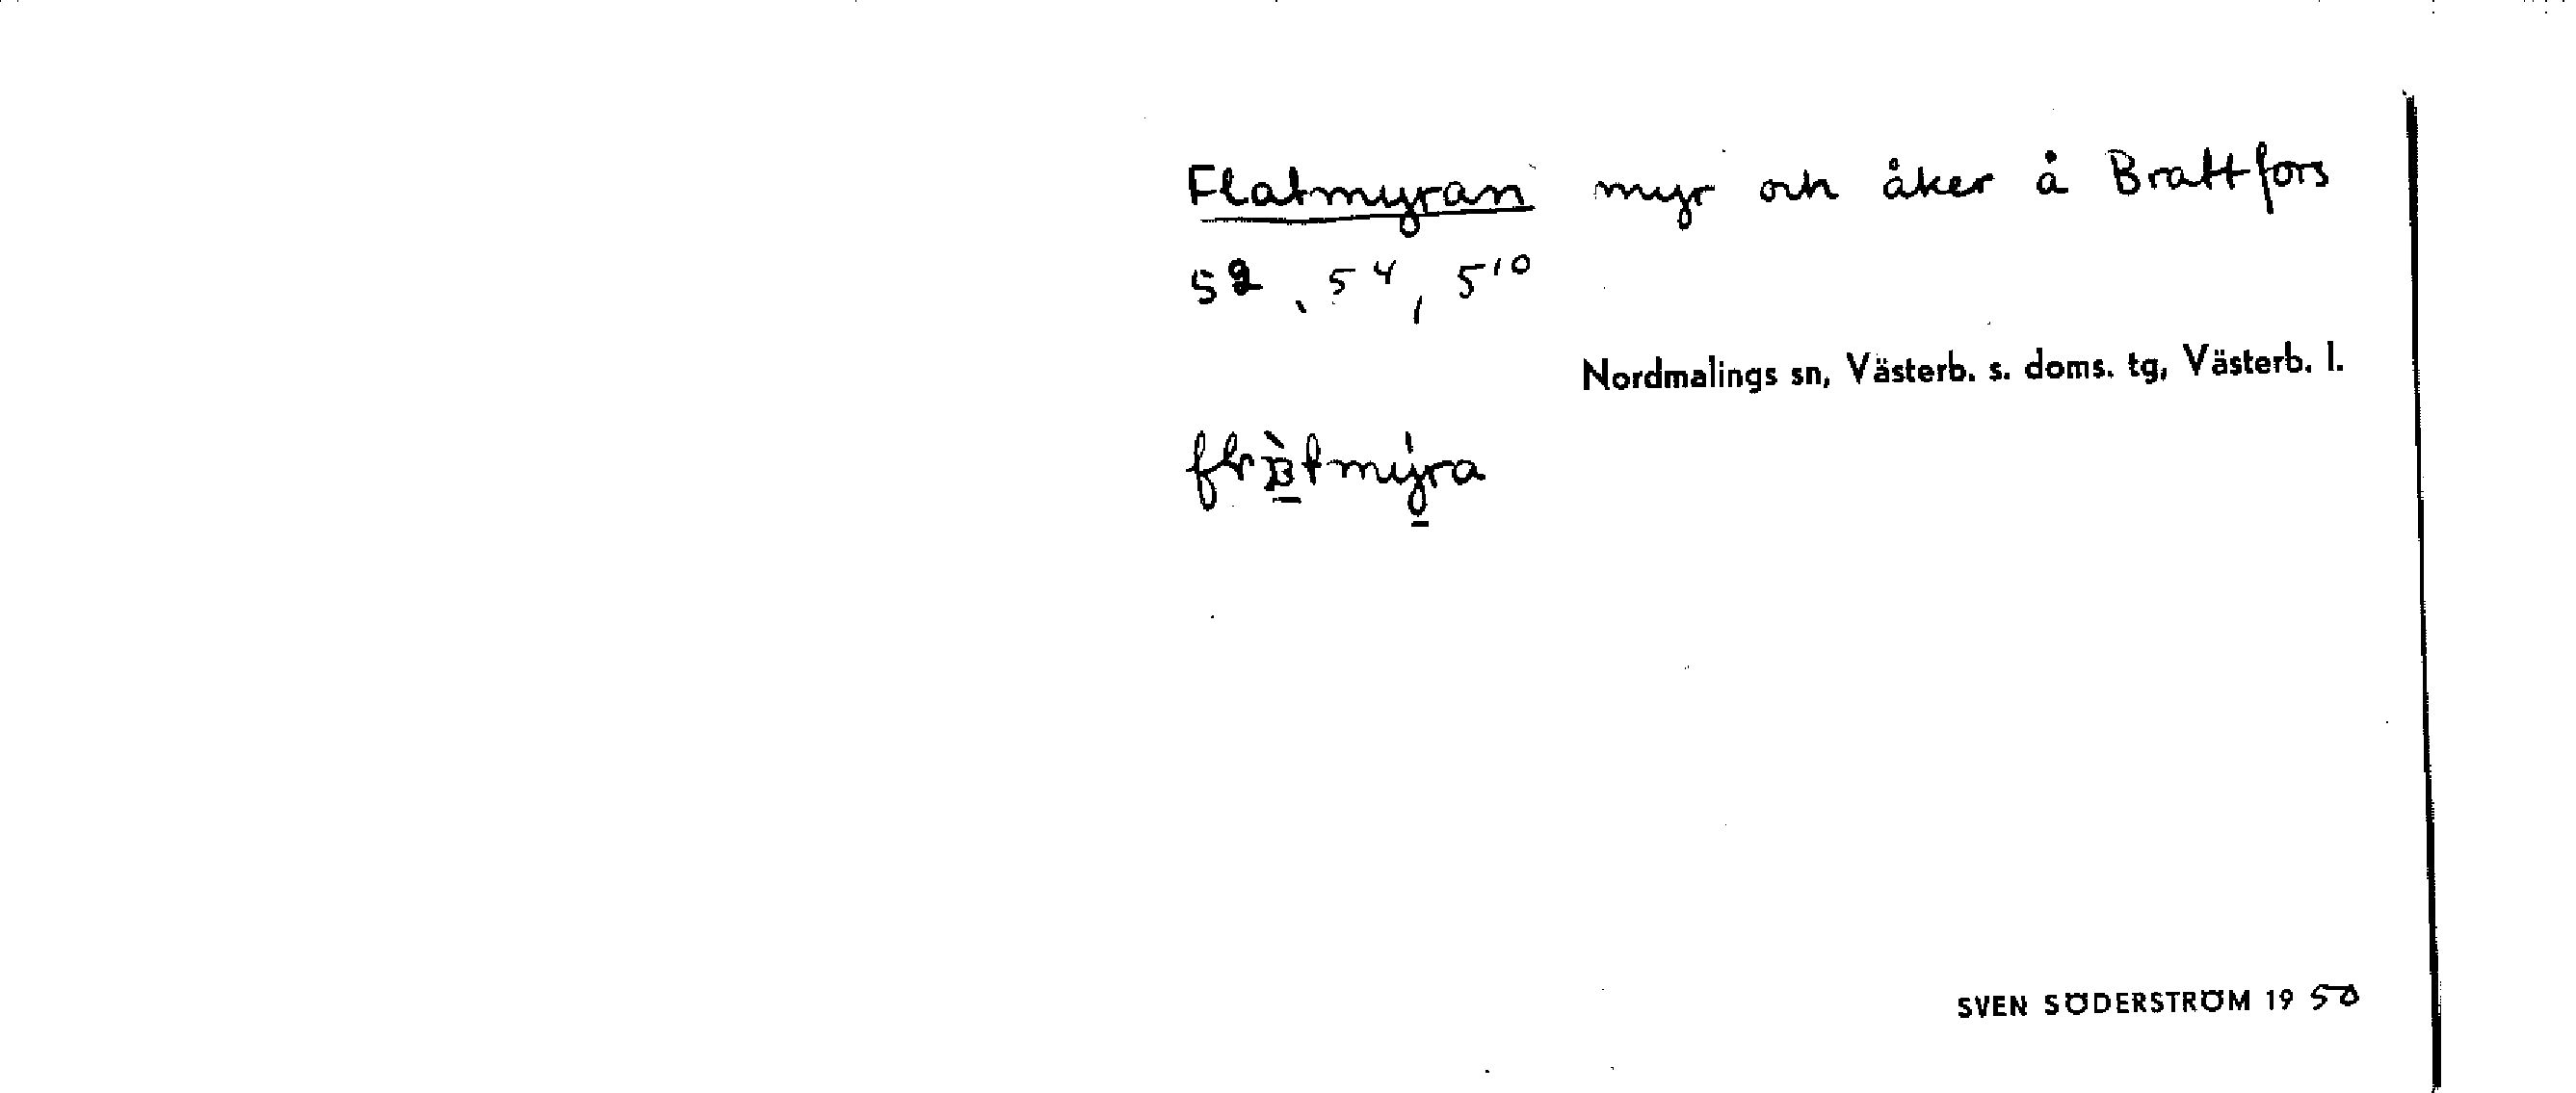 Flatmyran myr och åker å Brattfors
5 2, 5 4, 5 10
Nordmalings sn, Västerb. s. doms. tg, Västerb. l.
SVEN SÖDERSTRÖM 19 50